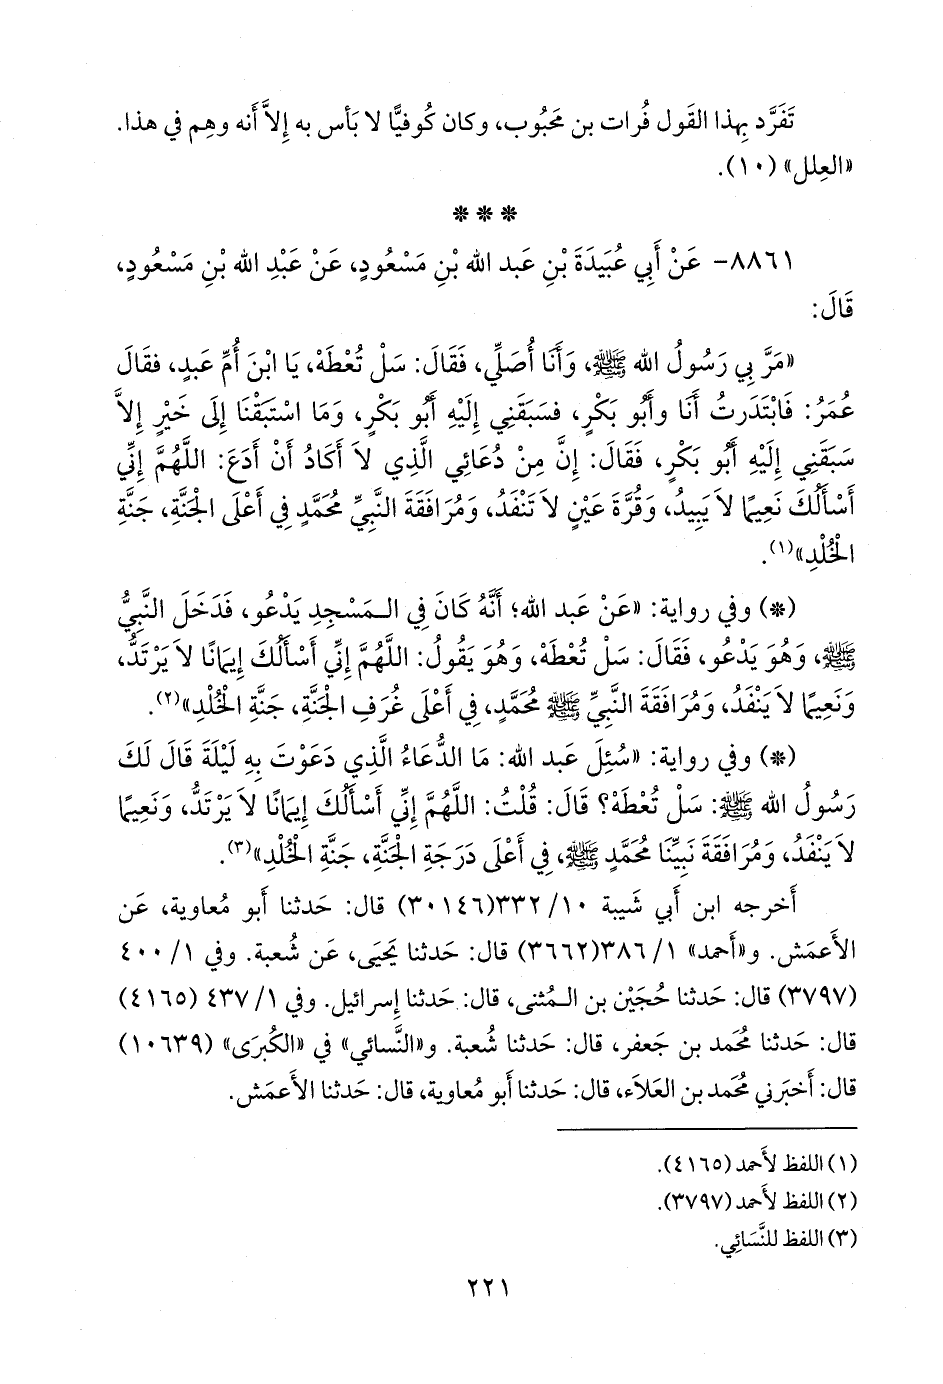 تَفَرَّد بِهذا القَول فُرات بن مَحبُوب، وكان كُوفيًّا لا بَأس به إِلاَّ أَنه وهِم في هذا.
«العِلل» (١٠).
***
٨٨٦١- عَنْ أَبِي عُبَيدَةَ بْنِ عَبد الله بْنِ مَسْعُودٍ، عَنْ عَبْدِ الله بْنِ مَسْعُودٍ،
قَالَ:
«مَرَّ بِي رَسُولُ الله ﷺ، وَأَنَا أُصَلِّي، فَقَالَ: سَلْ تُعْطَهْ، يَا ابْنَ أُمِّ عَبدٍ، فقَالَ
عُمَرُ: فَابْتَدَرتُ أَنَا وأَبُو بَكْرٍ، فسَبَقَنِي إِلَيْهِ أَبُو بَكْرٍ، وَمَا اسْتَبَقْنَا إِلَى خَيْرٍ إِلاَّ
سَبَقَنِي إِلَيْهِ أَبُو بَكْرٍ، فَقَالَ: إِنَّ مِنْ دُعَائِي الَّذِي لاَ أَكَادُ أَنْ أَدَعَ: اللَّهُمَّ إِنِّي
أَسْأَلُكَ نَعِيمًا لاَ يَبِيدُ، وَقُرَّةَ عَيْنٍ لاَ تَنْفَدُ، وَمُرَافَقَةَ النَّبِيِّ مُحَمَّدٍ فِي أَعْلَى الجَنَّةِ، جَنَّةِ
الخُلْدِ»(١).
(*) وفي رواية: «عَنْ عَبد الله؛ أَنَّهُ كَانَ فِي الـمَسْجِدِ يَدْعُو، فَدَخَلَ النَّبِيُّ
ﷺ، وَهُوَ يَدْعُو، فَقَالَ: سَلْ تُعْطَهْ، وَهُوَ يَقُولُ: اللَّهُمَّ إِنِّي أَسْأَلُكَ إِيمَانًا لاَ يَرْتَدُّ،
وَنَعِيمًا لاَ يَنْفَدُ، وَمُرَافَقَةَ النَّبِيِّ ﷺ مُحَمَّدٍ، فِي أَعْلَى غُرَفِ الجَنَّةِ، جَنَّةِ الخُلْدِ»(٢).
(*) وفي رواية: «سُئِلَ عَبد الله: مَا الدُّعَاءُ الَّذِي دَعَوْتَ بِهِ لَيْلَةَ قَالَ لَكَ
رَسُولُ الله ﷺ: سَلْ تُعْطَهْ؟ قَالَ: قُلْتُ: اللَّهُمَّ إِنِّي أَسْأَلُكَ إِيمَانًا لاَ يَرْتَدُّ، وَنَعِيمًا
لاَ يَنْفَدُ، وَمُرَافَقَةَ نَبِيِّنَا مُحَمَّدٍ ﷺ، فِي أَعْلَى دَرَجَةِ الجَنَّةِ، جَنَّةِ الخُلْدِ»(٣).
أَخرجه ابن أَبي شَيبة ١٠/ ٣٣٢(٣٠١٤٦) قال: حَدثنا أَبو مُعاوية، عَن
الأَعمَش. و«أَحمد» ١/ ٣٨٦(٣٦٦٢) قال: حَدثنا يَحيَى، عَن شُعبة. وفي ١/ ٤٠٠
(٣٧٩٧) قال: حَدثنا حُجَيْن بن الـمُثنى، قال: حَدثنا إِسرائيل. وفي ١/ ٤٣٧ (٤١٦٥)
قال: حَدثنا مُحمد بن جَعفر، قال: حَدثنا شُعبة. و«النَّسائي» في «الكُبرَى» (١٠٦٣٩)
قال: أَخبَرني مُحمد بن العَلاَء، قال: حَدثنا أَبو مُعاوية، قال: حَدثنا الأَعمَش.
(١) اللفظ لأَحمد (٤١٦٥).
(٢) اللفظ لأَحمد (٣٧٩٧).
(٣) اللفظ للنَّسَائِي.
٢٢١